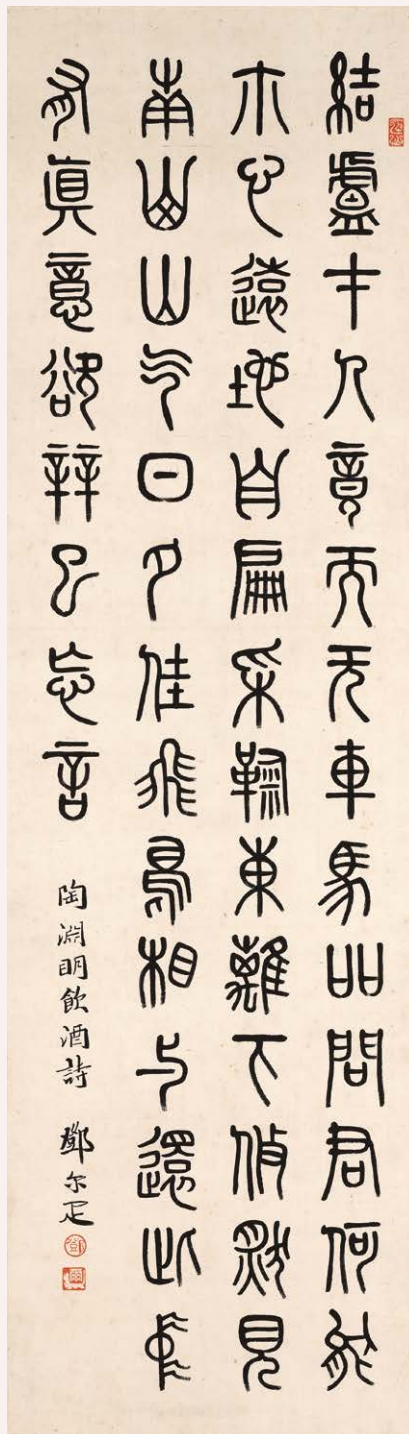 結盧才人竟而无車馬吅問君何能
尒心遠地自扁采鞠東離下攸然見
南山山气日夕佳飛鳥相与還此中
有眞意欲辡已忘言
陶淵明飲酒詩 鄧尔疋
鄧